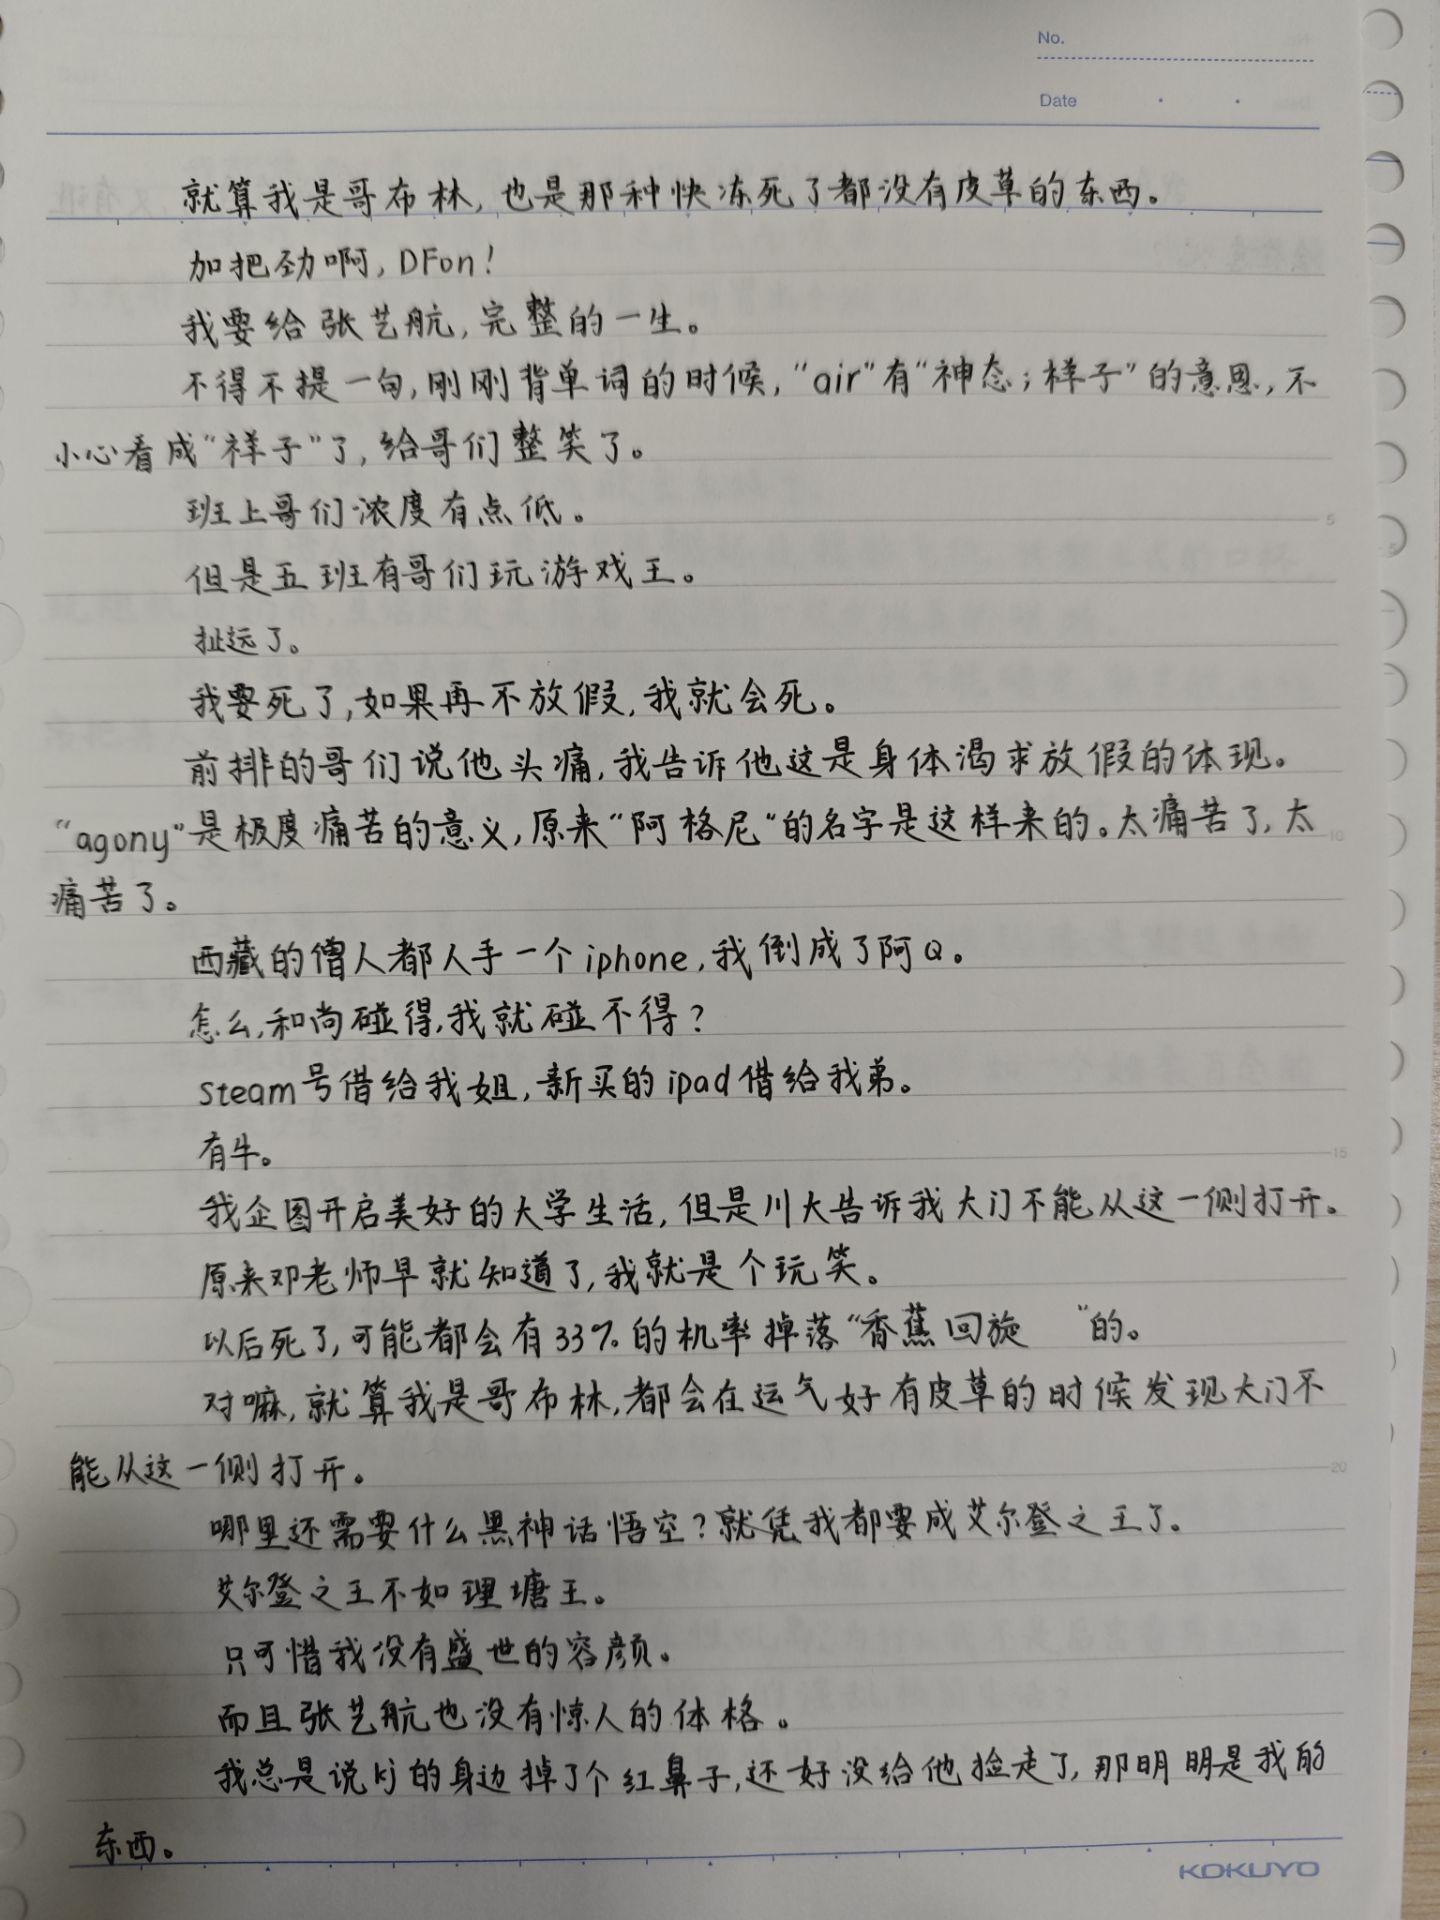 No.
Date
就算我是哥布林,也是那种快冻死了都没有皮草的东西。
加把劲啊,DFon!
我要给张艺航,完整的一生。
不得不提一句,刚刚背单词的时候,“air”有“神态;样子”的意思,不
小心看成“祥子”了,给哥们整笑了。
班上哥们浓度有点低。
5
但是五班有哥们玩游戏王。
扯远了。
我要死了,如果再不放假,我就会死。
前排的哥们说他头痛,我告诉他这是身体渴求放假的体现。
“agony”是极度痛苦的意义,原来“阿格尼”的名字是这样来的。太痛苦了,太
10
痛苦了。
西藏的僧人都人手一个iphone,我倒成了阿Q。
怎么,和尚碰得,我就碰不得?
steam号借给我姐,新买的ipad借给我弟。
有牛。
15
我企图开启美好的大学生活,但是川大告诉我大门不能从这一侧打开。
原来邓老师早就知道了,我就是个玩笑。
以后死了,可能都会有33%的机率掉落“香蕉回旋 ”的。
对嘛,就算我是哥布林,都会在运气好有皮草的时候发现大门不
能从这一侧打开。
20
哪里还需要什么黑神话悟空?就凭我都要成艾尔登之王了。
艾尔登之王不如理塘王。
只可惜我没有盛世的容颜。
而且张艺航也没有惊人的体格。
我总是说kj的身边掉了个红鼻子,还好没给他捡走了,那明明是我的
东西。
KOKUYO